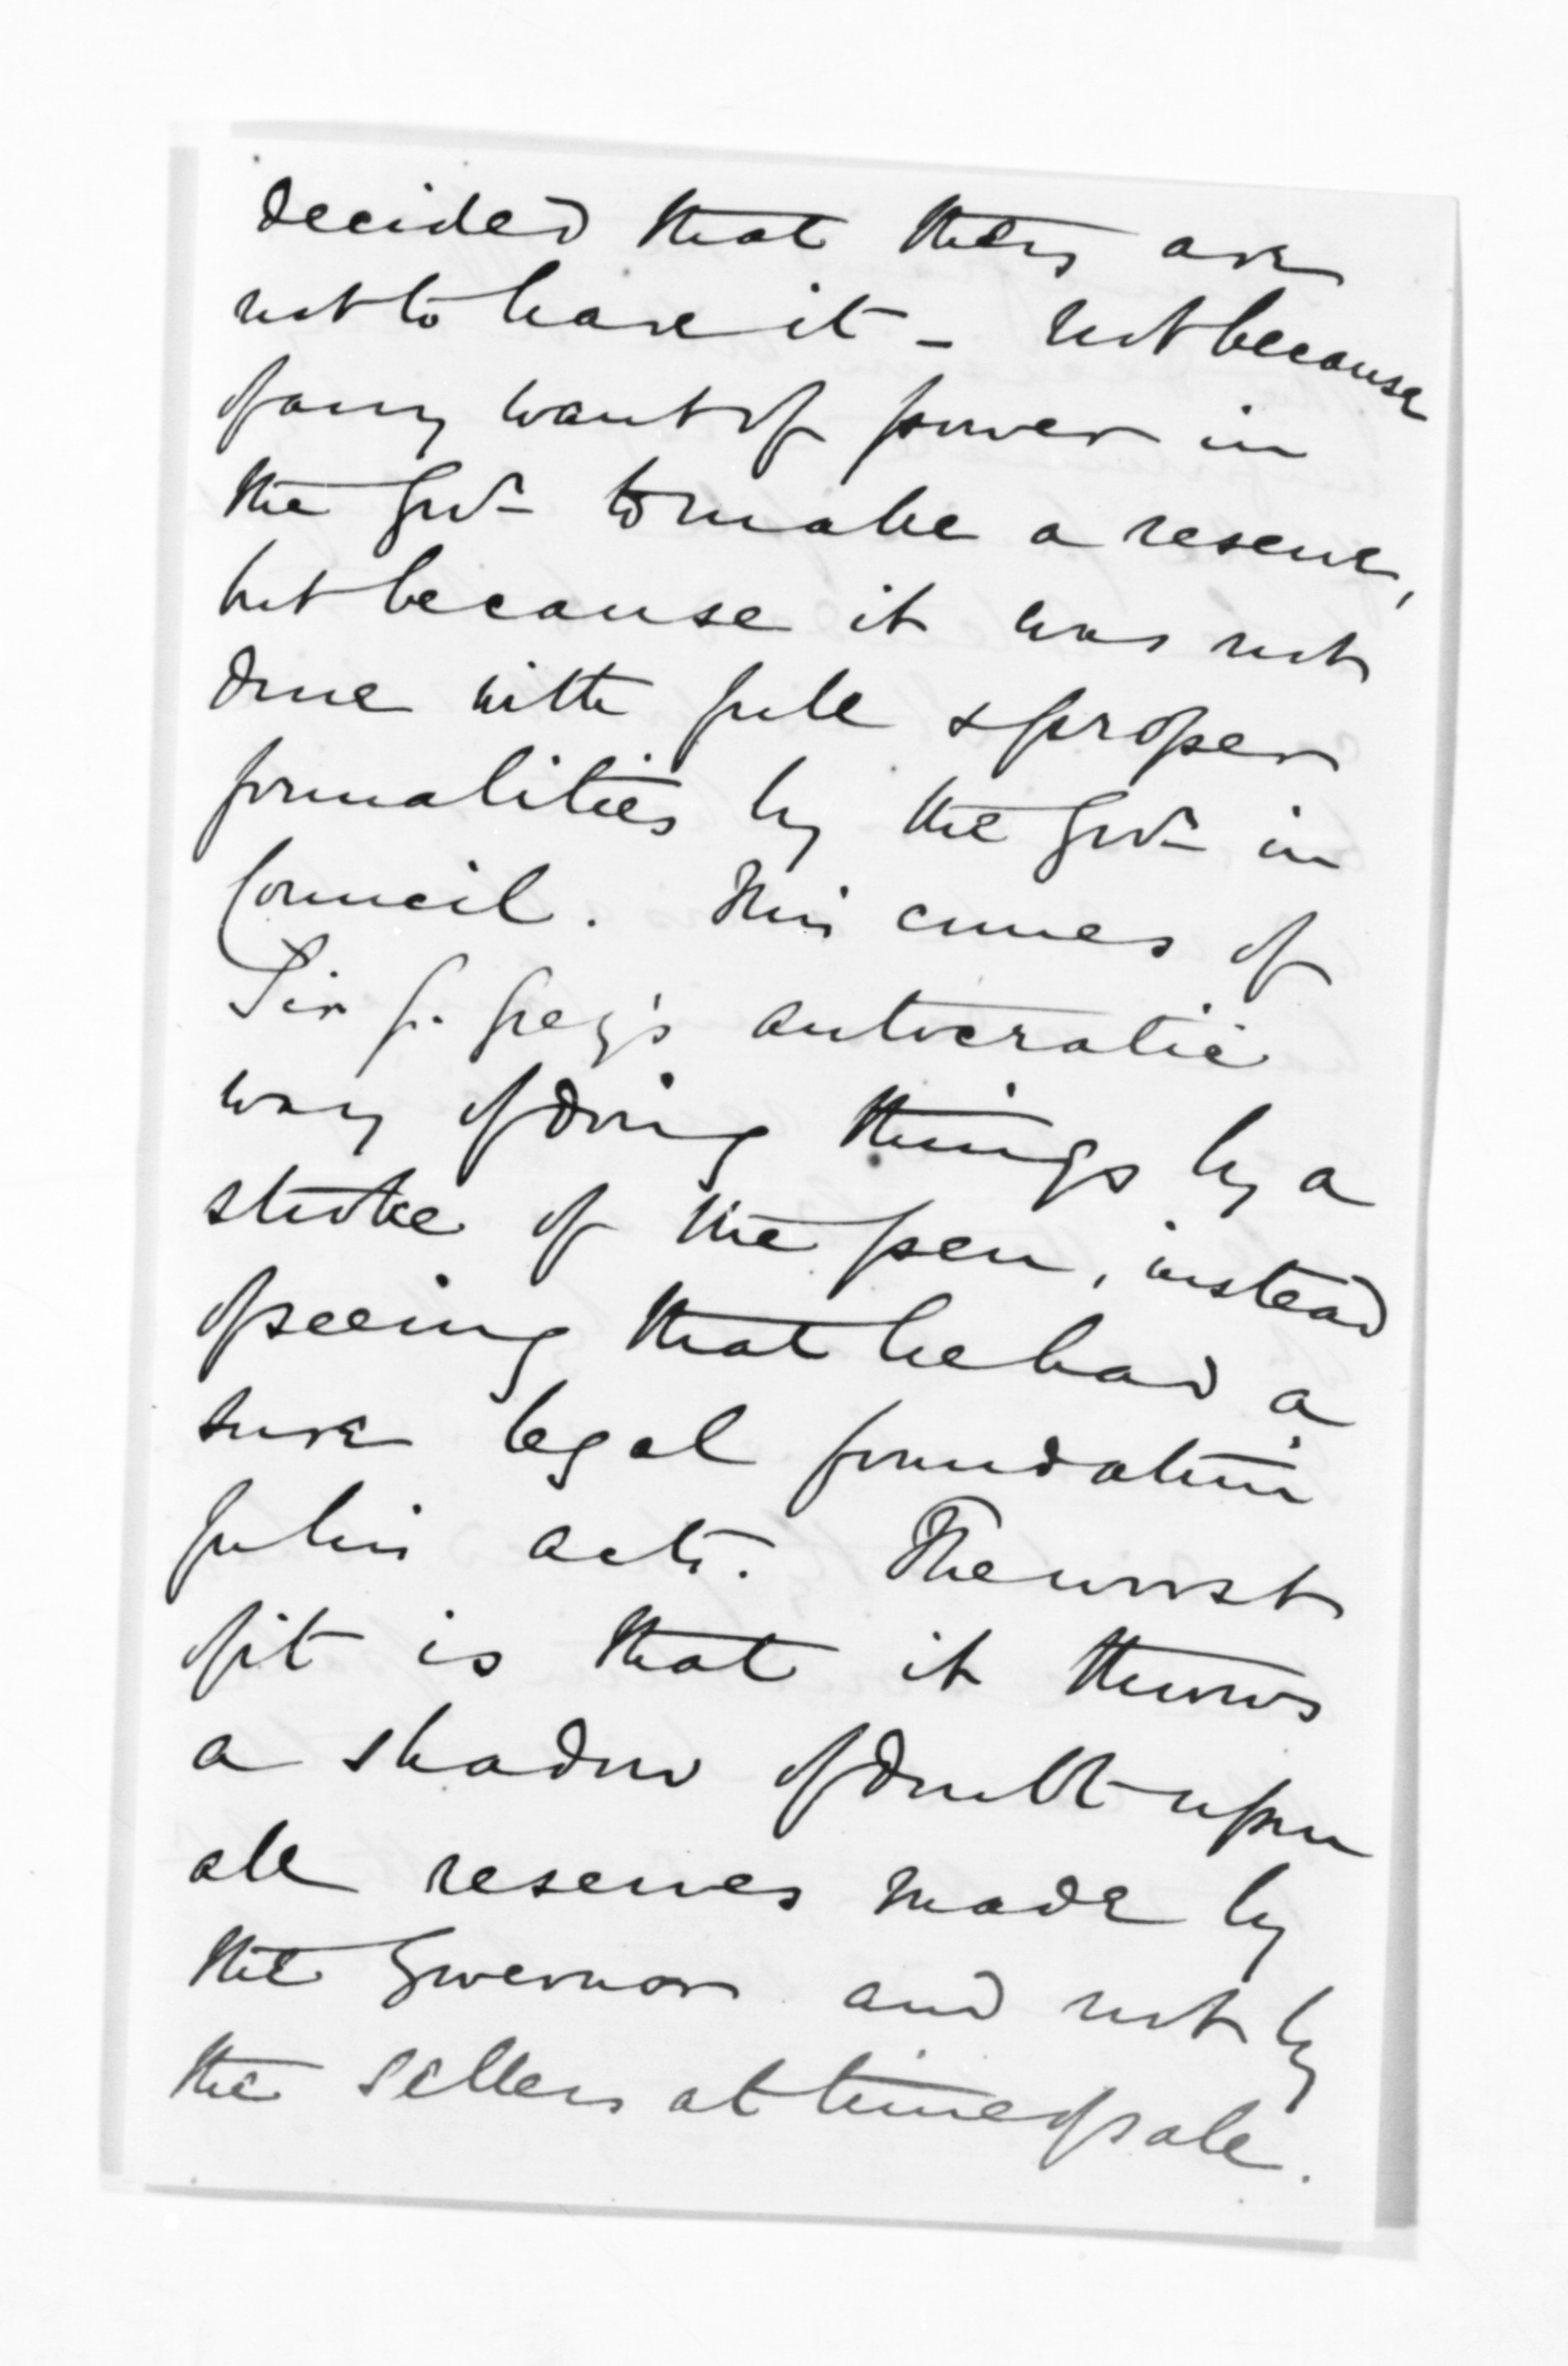 decided that they are
not to have it - not because
of any want of power in
the Govr to make a reserve,
but because it was not
done with full & proper
formalities by the Govr in
Council. This comes of
Sir G. Grey's autocratic
way of doing things by a
stroke of the pen, instead
of seeing that he had a
sure legal foundation
for his acts. The worst
of it is that it throws
a shadow of doubt upon
all reserves made by
the Governor and not by
the sellers at time of sale.